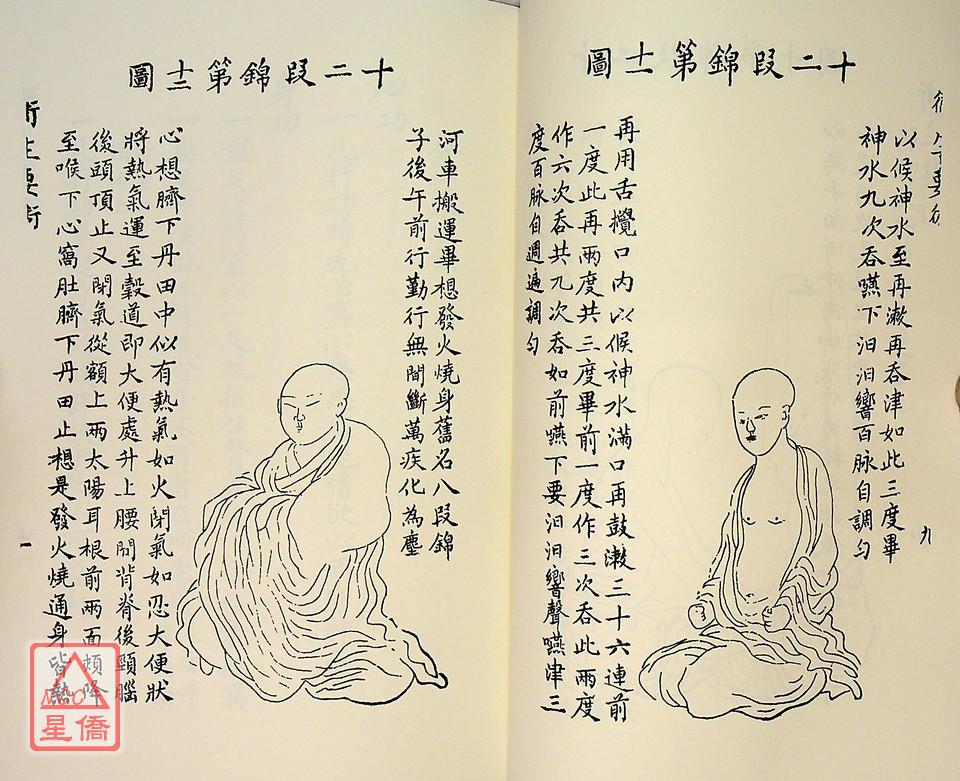 十二段錦第十一圖
以候神水至再漱再吞津如此三度畢
神水九次吞嚥下汩汩響百脉自調勻
再用舌攪口內以候神水滿口再鼓漱三十六連前
一度此再兩度共三度畢前一度作三次吞此兩度
作六次吞共九次吞如前嚥下要汩汩響聲嚥津三
度百脉自週遍調勻
九
十二段錦第十二圖
河車搬運畢想發火燒身舊名八段錦
子後午前行勤行無間斷萬疾化為塵
心想臍下丹田中似有熱氣如火閉氣如忍大便狀
將熱氣運至榖道即大便處升上腰間背脊後頸腦
後頭頂止又閉氣從額上兩太陽耳根前兩面頰降
至喉下心窩肚臍下丹田止想是發火燒通身皆熱
衛生要術
NCC
星僑